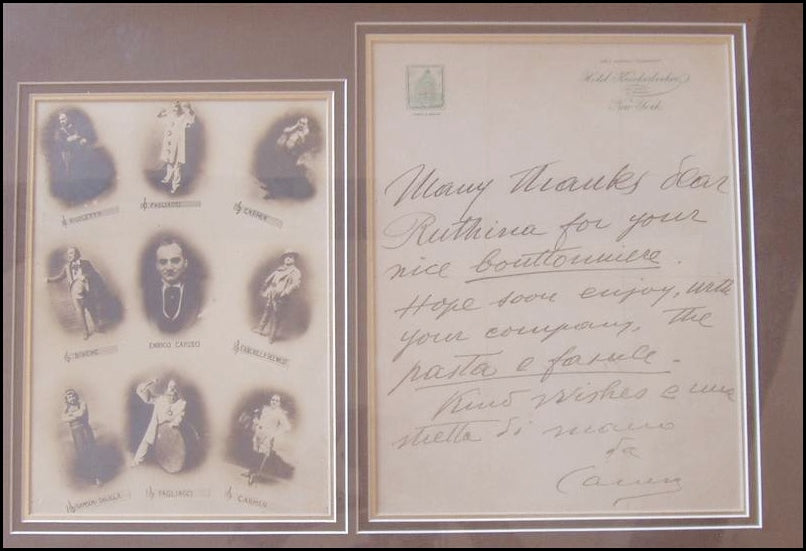 RIGOLETTO
PAGLIACCI
CARMEN
BOHEME
ENRICO CARUSO
FANCIULLA DEL WEST
SANSON-DALILLA
PAGLIACCI
CARMEN
Hotel Knickerbocker
New York
Many thanks dear
Ruthina for your
nice bouttonniere.
Hope soon enjoy, with
your company, the
pasta e fasule.
Kind wishes e una
stretta di mano
da
Caruso